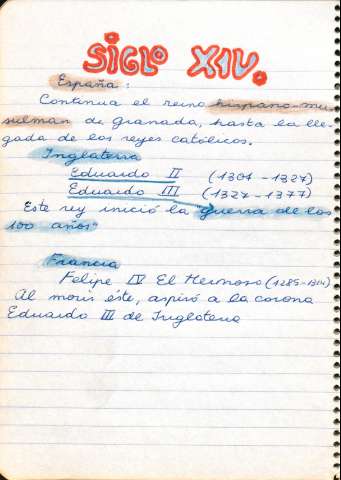 SIGLO XIV.
España :
Continua el reino hispano-mu-
sulman de granada, hasta la lle-
gada de los reyes católicos.
Inglaterra
Eduardo II (1307-1327)
Eduardo III (1327-1377)
Este rey inició la guerra de los
100 años"
Francia
Felipe IV El Hermoso (1285-1314)
Al morir éste, aspiró a la corona
Eduardo III de Inglaterra